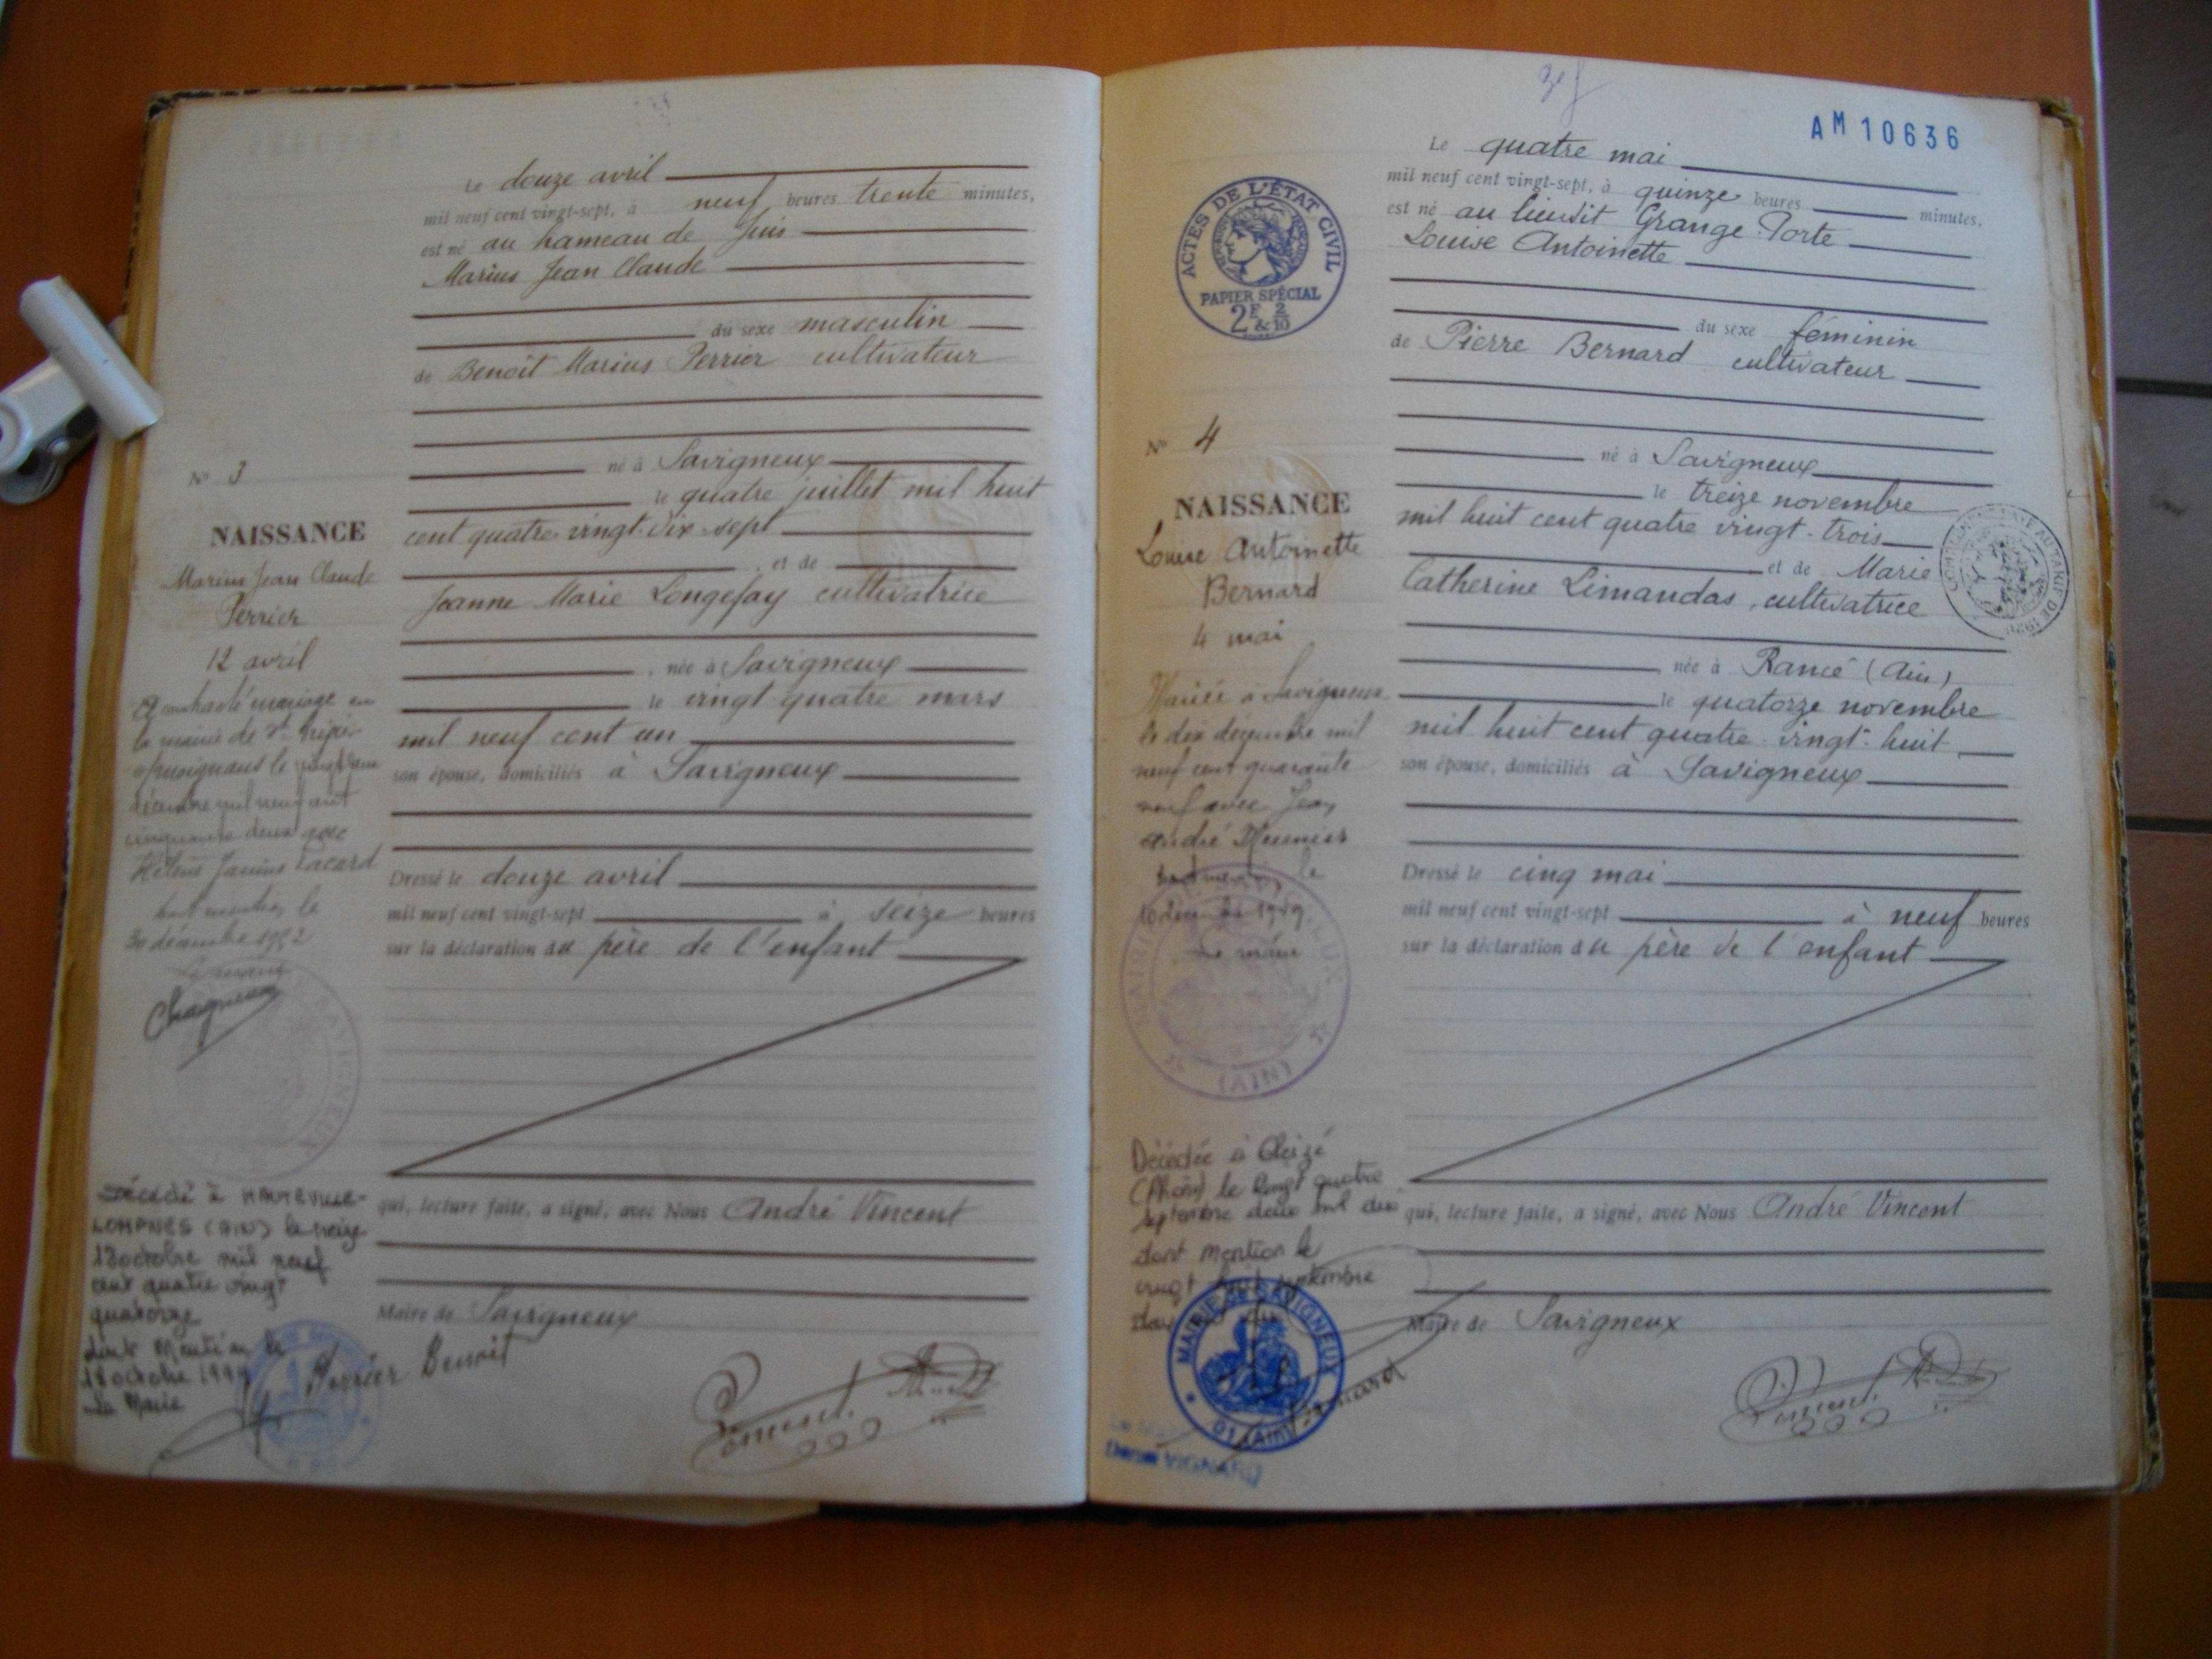 Le douze avril
mil neuf cent vingt-sept, à neuf heures trente minutes,
est né au hameau de Juis
Marius Jean Claude
du sexe masculin
de Benoit Marius Perrier cultivateur
né à Savigneux
le quatre juillet mil huit
cent quatre-vingt-dix-sept
, et de
Jeanne Marie Longefay cultivatrice
, née à Savigneux
le vingt quatre mars
mil neuf cent un
son épouse, domiciliés à Savigneux
Dressé le douze avril
mil neuf cent vingt-sept à seize heures
sur la déclaration du père de l'enfant
qui, lecture faite, a signé, avec Nous André Vincent
Maire de Savigneux
Perrier Benoit
N° 3
NAISSANCE
Marius Jean Claude
Perrier
12 avril
mariage
la mairie de
le
décembre mil neuf cent
cinquante deux avec
Hélène Lacard
dont mention le
décembre 1952
Chagneux
Décédé à HAUTEVILLE-
LOMPNES (AIN) le
18 octobre mil neuf
cent quatre vingt
quatorze
dont Mention le
18 octobre 1994
Le Maire
AM 10636
Le quatre mai
mil neuf cent vingt-sept, à quinze heures minutes,
est né au lieudit Grange Porte
Louise Antoinette
du sexe féminin
de Pierre Bernard cultivateur
né à Savigneux
le treize novembre
mil huit cent quatre vingt-trois
et de Marie
Catherine Limandas, cultivatrice
, née à Rancé (Ain)
le quatorze novembre
mil huit cent quatre-vingt-huit
son épouse, domiciliés à Savigneux
Dressé le cinq mai
mil neuf cent vingt-sept à neuf heures
sur la déclaration du père de l'enfant
qui, lecture faite, a signé, avec Nous André Vincent
Maire de Savigneux
Bernard
ACTES DE L'ÉTAT CIVIL
RÉPUBLIQUE FRANÇAISE
PAPIER SPÉCIAL
2F & 2/10
N° 4
NAISSANCE
Louise Antoinette
Bernard
4 mai
Mariée à Savigneux
le dix décembre mil
neuf cent quarante
neuf avec Jean
André Meunier
dont mention le
10 1949
Le maire
(AIN)
Décédée à Gleizé
(Rhône) le vingt quatre
septembre deux mil dix
dont mention le
vingt septembre
MAIRIE de SAVIGNEUX
01 (Ain)
VIGNARD